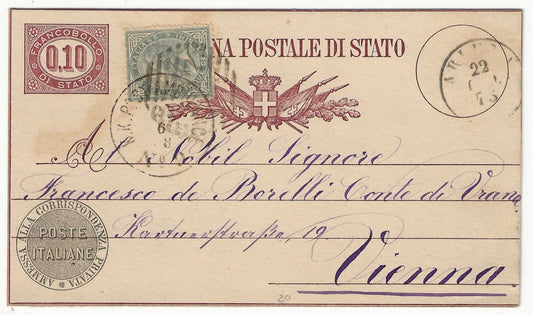 FRANCOBOLLO
0,10
DI STATO
NA POSTALE DI STATO
22
Al Nobil Signore
Francesco de Borelli Conte di Vrana
Kartnerstraße 12
Vienna
AMMESSA ALLA CORRISPONDENZA PRIVATA
POSTE
ITALIANE
20